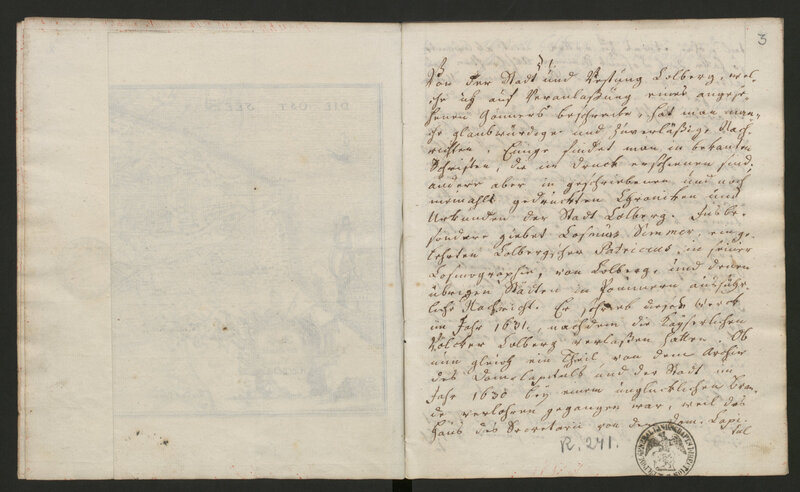 DIE OST SEE
3
§ 1.
Von der Stadt und Vestung Colberg, wel-
che ich auf Veranlaßung eines angese-
henen Gönners beschreibe, hat man man-
che glaubwürdige und zuverläßige Nach-
richten. Einige findet man in bekanten
Schriften, die in Druck erschienen sind,
andere aber in geschriebenen und noch
niemahls gedruckten Chroniken und
Urkunden der Stadt Colberg. Insbe-
sondere giebet Cosmus Simmer, ein ge-
lehrter Colbergscher Patricius, in seiner
Cosmographie, von Colberg und denen
übrigen Städten in Pommern ausführ-
liche Nachricht. Er schrieb dieses Werck
im Jahr 1631, nachdem die Kayserlichen
Völcker Colberg verlaßen hatten. Ob
nun gleich ein Theil von dem Archiv
des Domcapitels und der Stadt im
Jahr 1630 bey einem unglücklichen Bran-
de verlohren gegangen war, weil das
Haus des Secretarii von dem Capi-
tul
R. 241.